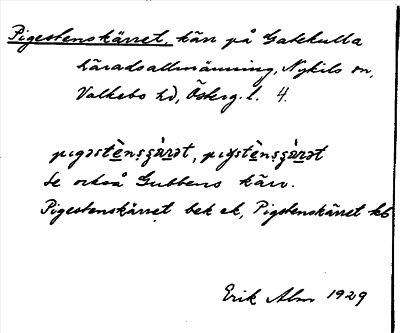 Pigestenskärret, kärr på Gatekulla
häradsallmänning, Nykils sn,
Valkebo hd, Österg. l. 4.
pıgəstènsçä̀rət, pıgstènsçä̀rət
Se också Gubbens kärr.
Pigestenskärret bek ek, Pigstenskärret kb
Erik Alm 1929